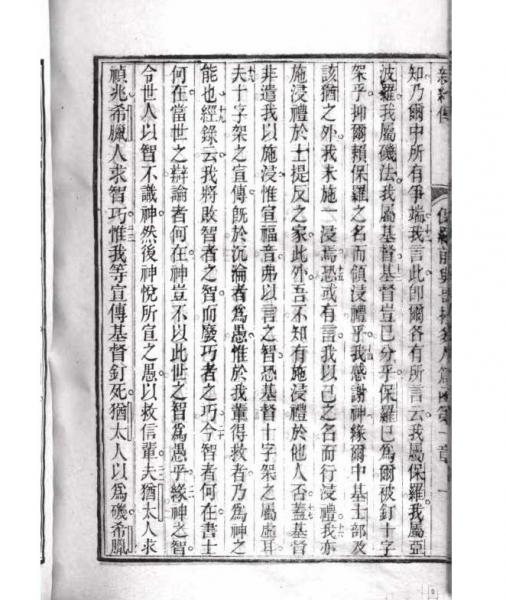 知乃爾中所有爭端。我言此即爾各有所言云。我屬保羅。我屬亞
波羅。我屬磯法。我屬基督。基督豈已分乎。保羅已爲爾被釘十字
架乎。抑爾賴保羅之名而領浸禮乎。我感謝神緣爾中基士部及
該猶之外。我未施一浸焉。恐或有言我以己之名而行浸禮。我亦
施浸禮於士提反之家。此外。吾不知有施浸禮於他人否。蓋基督
非遣我以施浸。惟宣福音。弗以言之智。恐基督十字架之屬虛耳。
夫十字架之宣傳。旣於沉淪者爲愚。惟於我輩得救者。乃爲神之
能也。經錄云。我將敗智者之智。而廢巧者之巧。今智者何在。書士
何在。當世之辯論者何在。神豈不以此世之智爲愚乎。緣神之智
令世人以智不識神。然後神悅所宣之愚。以救信輩。夫猶太人求
禎兆。希臘人求智巧。惟我等宣傳基督釘死。猶太人以爲礙。希臘